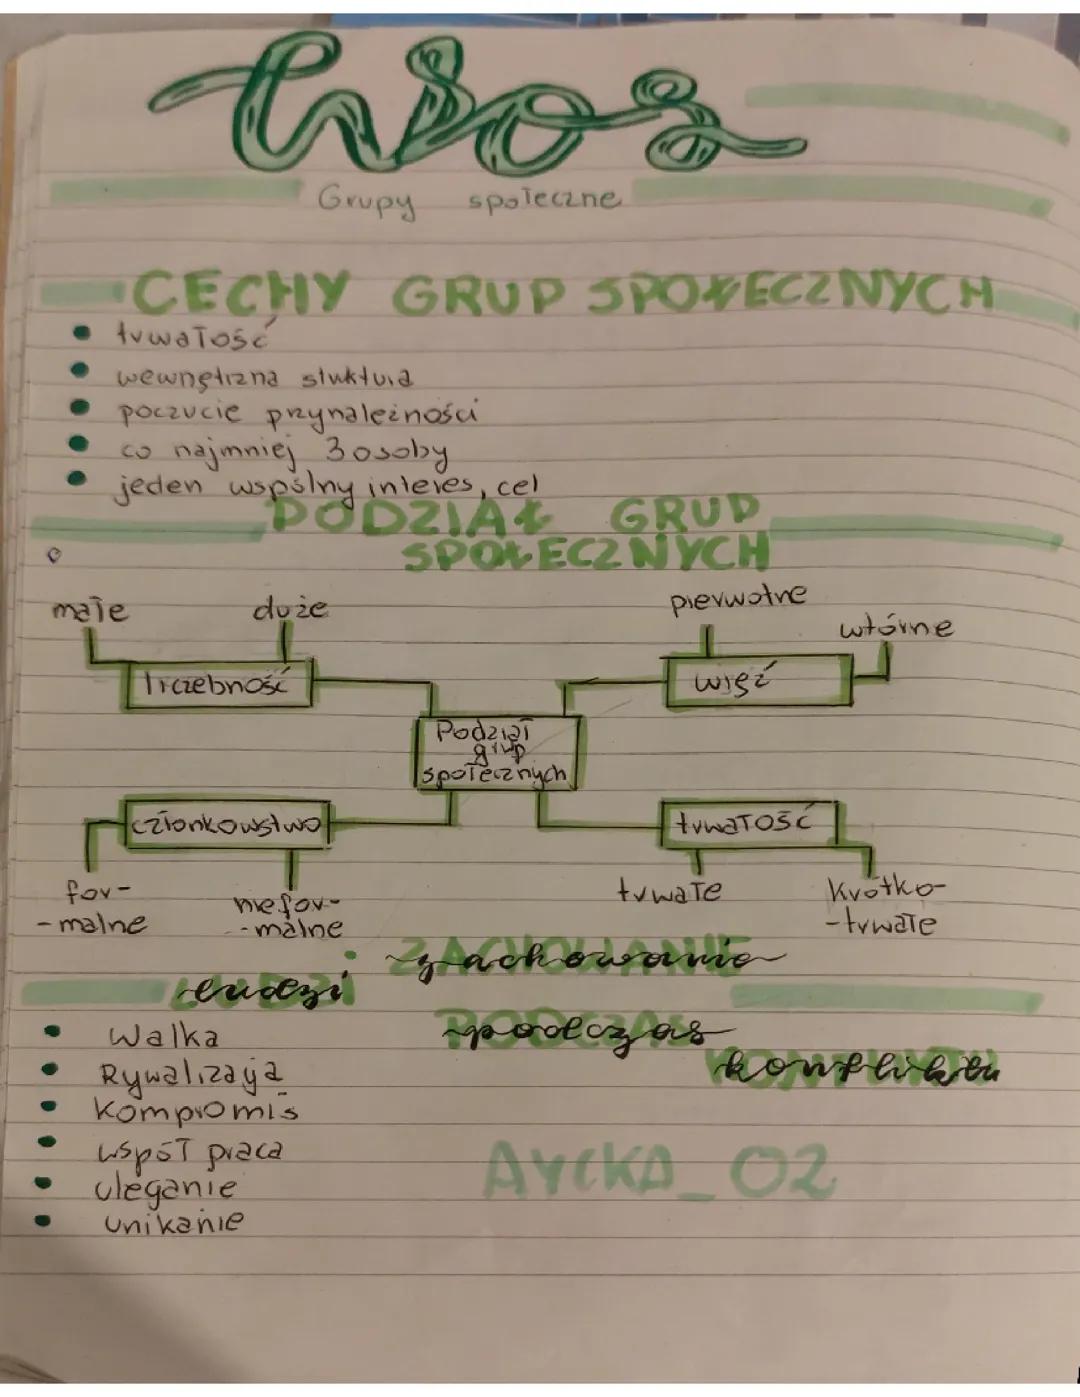 Wos
Grupy społeczne
CECHY GRUP SPOŁECZNYCH
trwałość
wewnętrzna stuktura
poczucie przynależności
co najmniej 3 osoby
jeden wspólny interes, cel
PODZIAŁ GRUP
SPOŁECZNYCH
małe duże pierwotne wtórne
liczebność więź
Podział
grup
społecznych
członkowstwo trwałość
for- niefor- trwałe krótko-
-malne -malne -trwałe
zachowanie
ludzi
podczas
konfliktu
Walka
Rywalizacja
Kompromis
współ praca
uleganie
unikanie
AYCKA_02